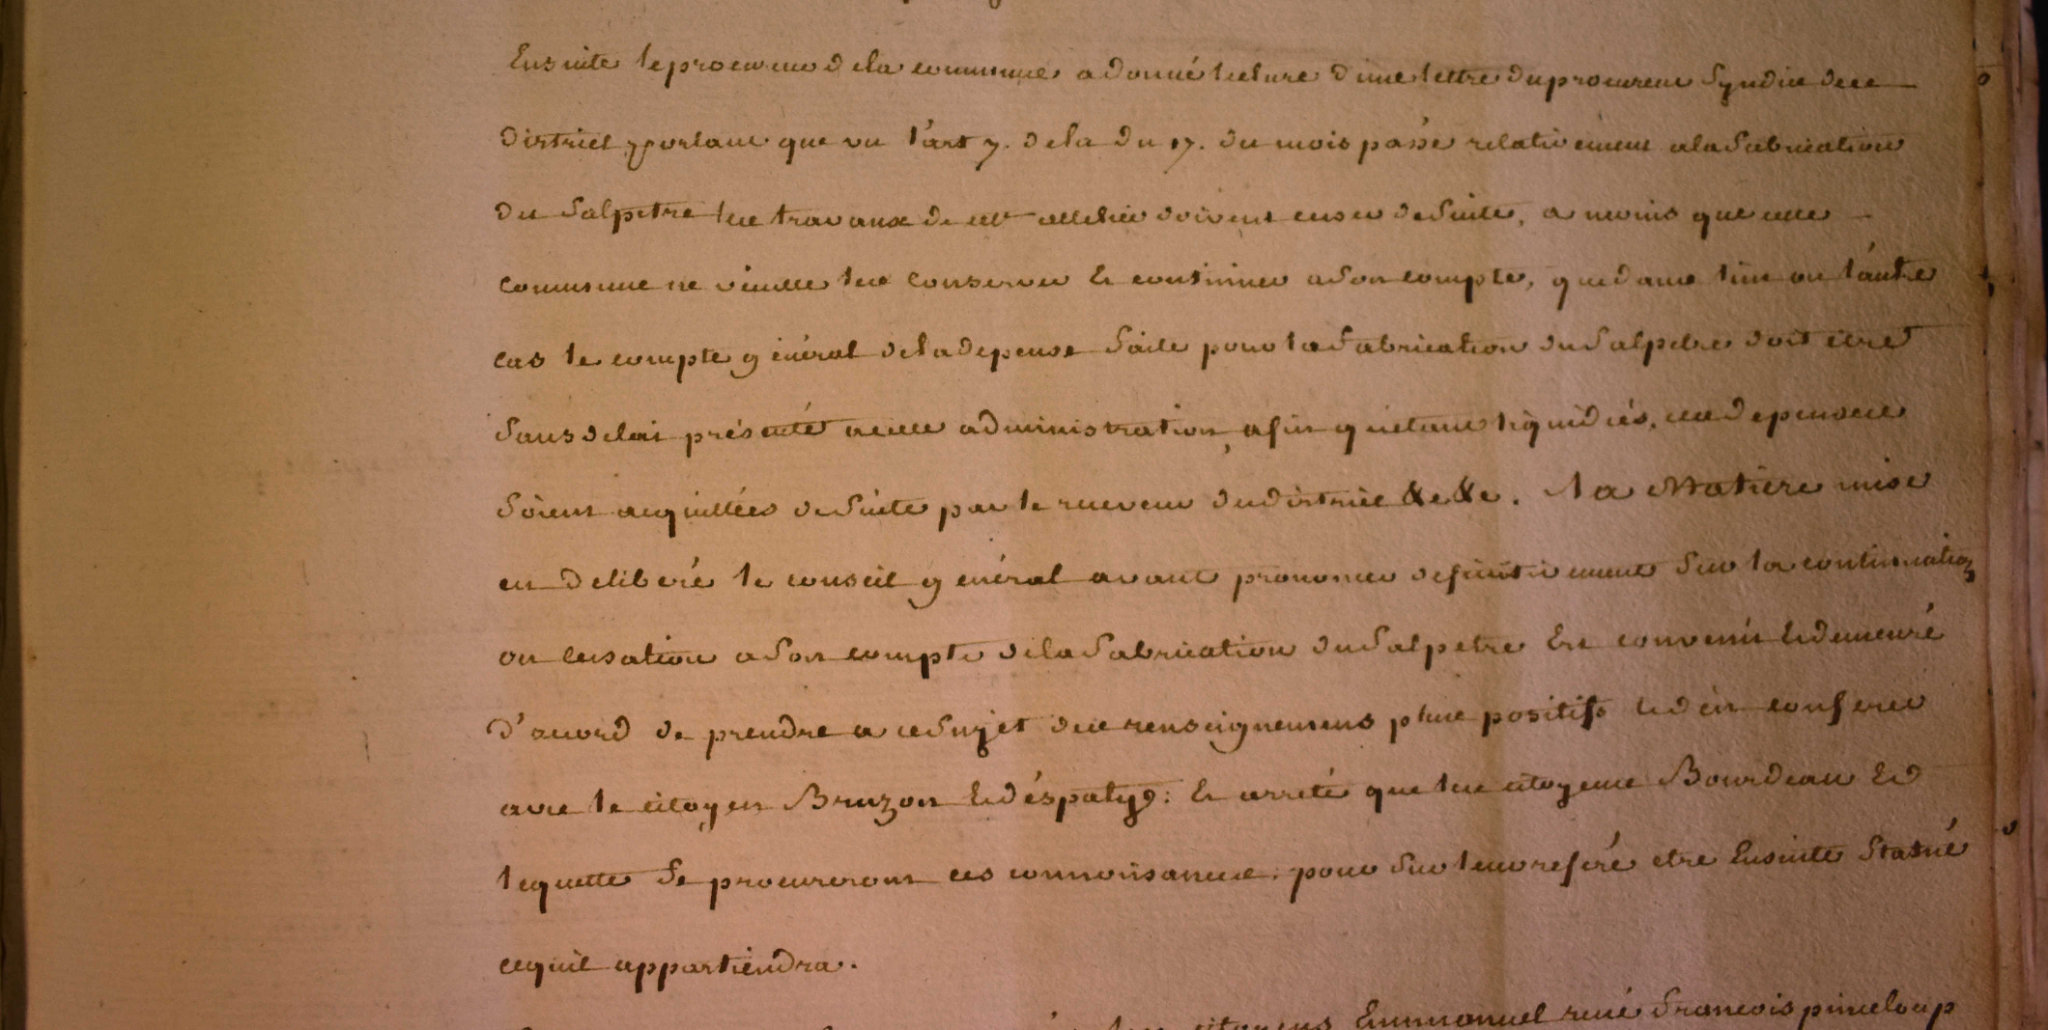 Ensuite le procureur de la commune a donné lecture d'une lettre du procureur syndic de ce
district portant que vu l'art 7. de la du 17. du mois passé relativement a la fabrication
du salpetre les travaux de cet attelier doivent cesser de suite, a moins que cette
commune ne veuille les conserver et continuer a son compte, que dans l'un ou l'autre
cas le compte général de la depense faite pour la fabrication du salpetre doit etre
sans delai présenté a cette administration, afin qu'etant liquidiés, ces depenses
soient acquittées de suite par le receveur du district &c &c. la matiere mise
en deliberé le conseil général avant prononcer definitivement sur la continuation
ou cessation a son compte de la fabrication du salpetre est convenu et demeuré
d'acord de prendre a ce sujet des renseignemens plus positifs et d'en conferer
avec le citoyen Bruzon et déspatys: et arrété que les citoyens Bourdeau et
lequette se procureront ces connoissances, pour sur leur referé etre ensuite statué
ce qu'il appartiendra.
citoyens Emmanuel rené francois pinceloup